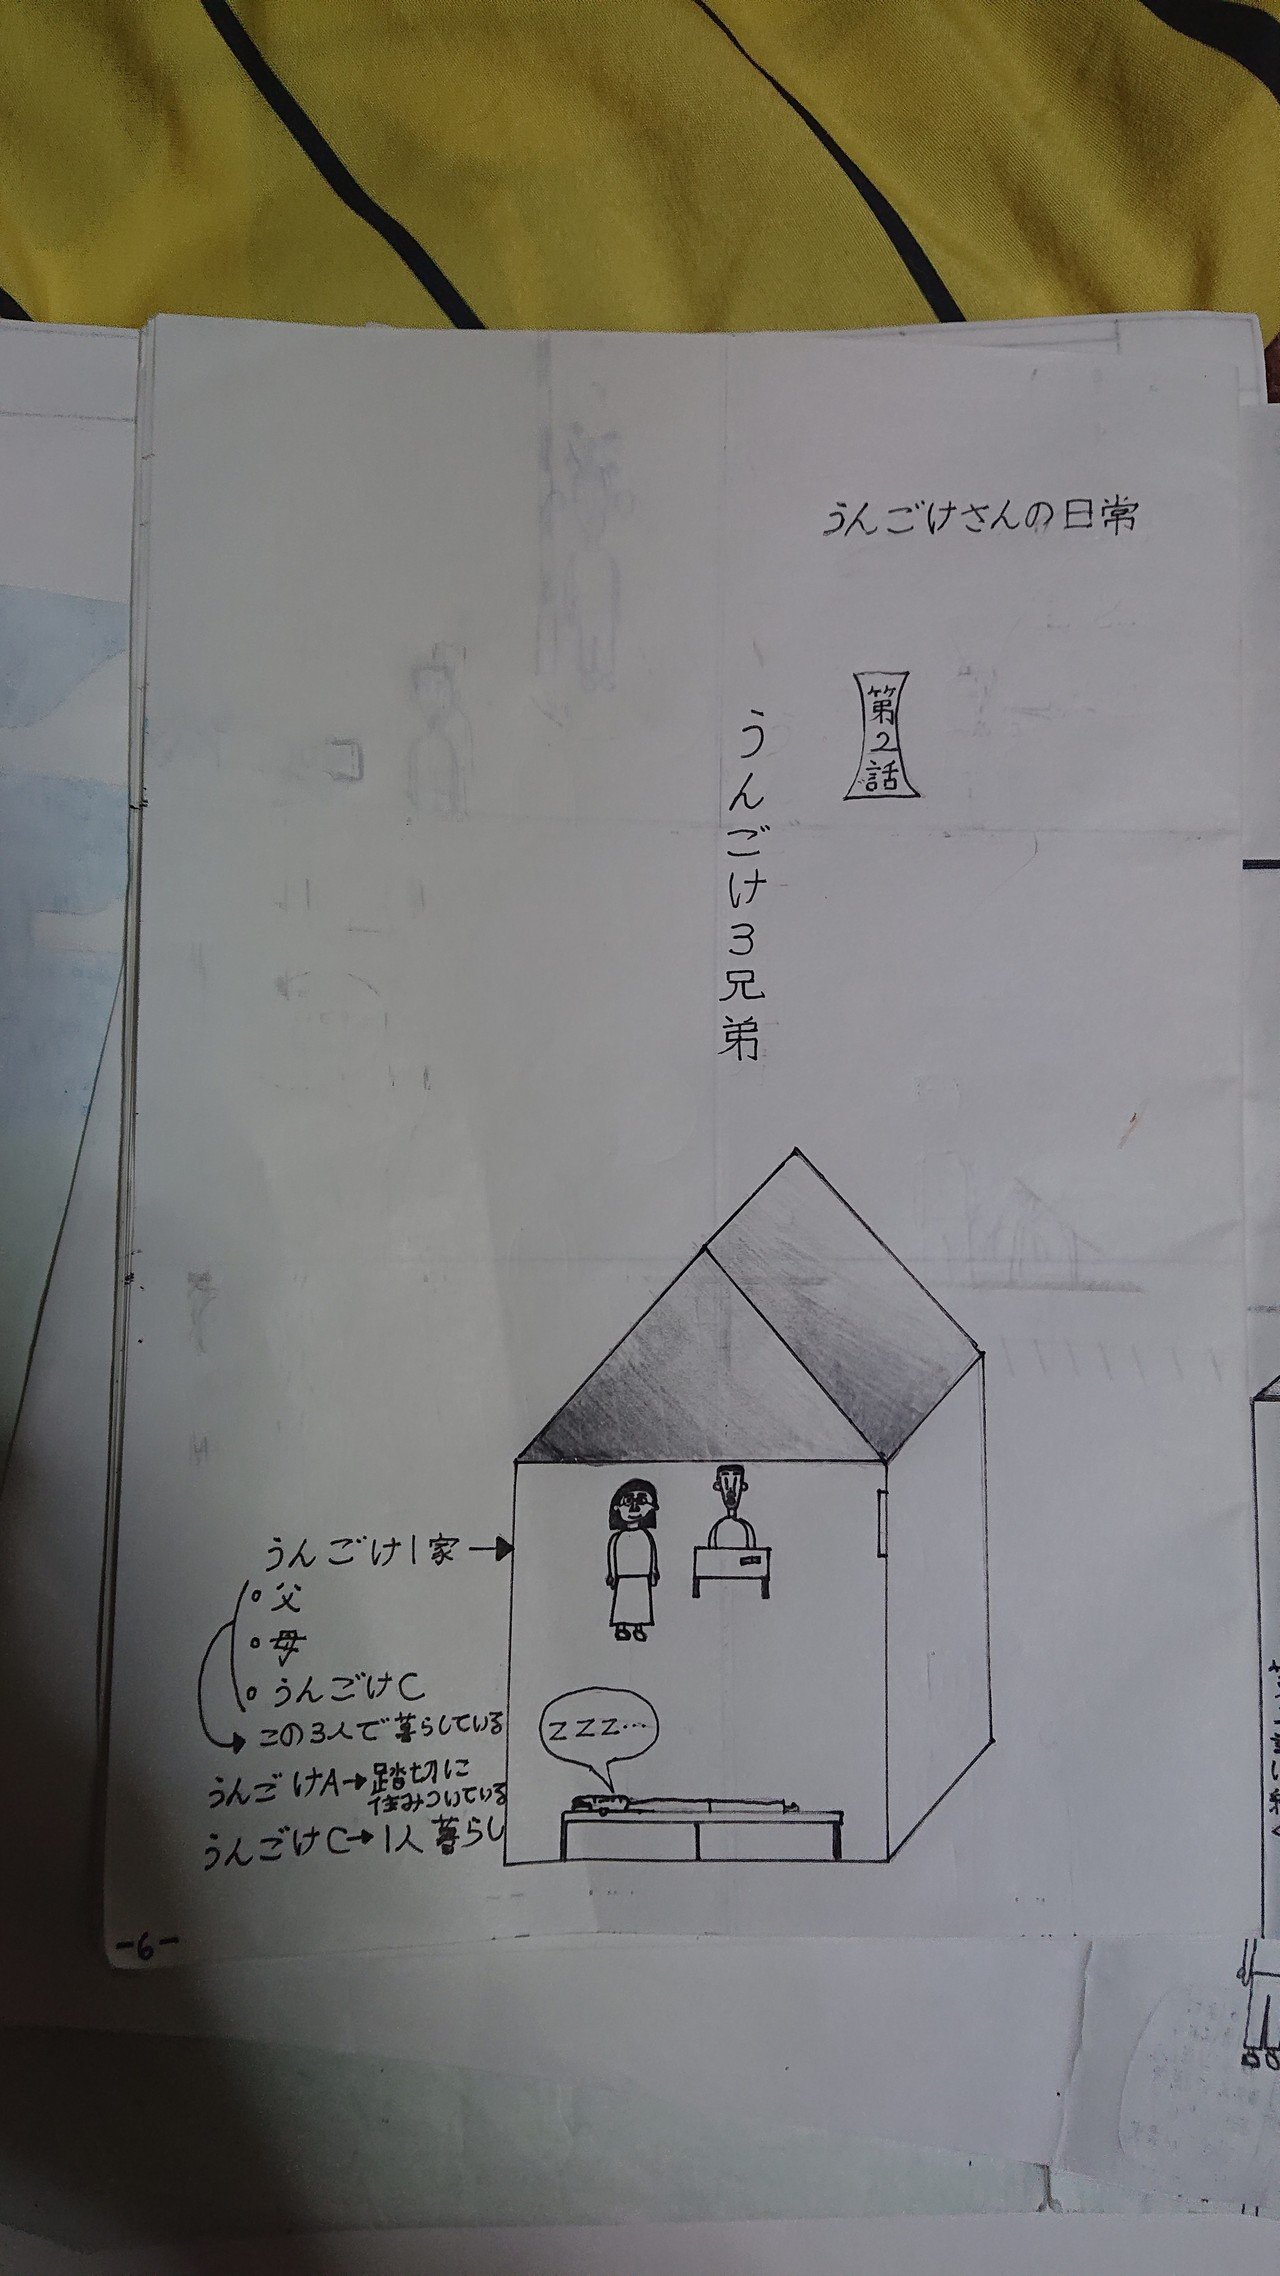 うんごけさんの日常
第2話
うんごけ3兄弟
うんごけ1家→
○父
○母
○うんごけC
→この3人で暮らしている
うんごけA→踏切に
住みついている
うんごけC→1人暮らし
ZZZ…
-6-